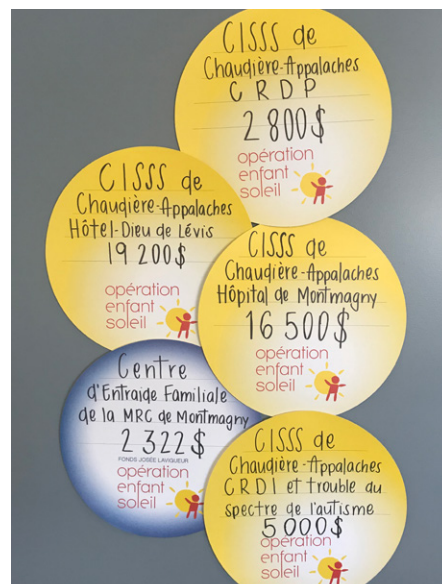 CISSS de
Chaudière-Appalaches
CRDP
2 800$
opération
enfant
soleil
CISSS de
Chaudière-Appalaches
Hôtel-Dieu de Lévis
19 200$
opération
enfant
soleil
CISSS de
Chaudière-Appalaches
Hôpital de Montmagny
16 500$
opération
enfant
soleil
Centre
d'Entraide Familiale
de la MRC de Montmagny
2 322$
FONDS JOSÉE LAVIGUEUR
opération
enfant
soleil
CISSS de
Chaudière-Appalaches
CRDI et trouble du
spectre de l'autisme
5 000$
opération
enfant
soleil